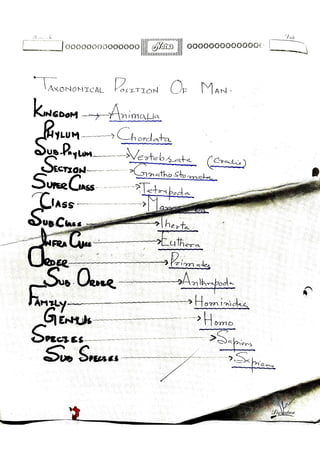 TAXONOMICAL POSITION OF MAN.
KINGDOM → Animalia
PHYLUM → Chordata
SUB-PHYLUM → Vertebrata
SECTION → Gnathostomata
SUPER CLASS → Tetrapoda
CLASS →
SUB CLASS → Theria
INFRA CLASS → Eutheria
ORDER → Primates
SUB ORDER → Anthropoda
FAMILY → Hominidae
GENUS → Homo
SPECIES → Sapiens
SUB SPECIES → Sapiens